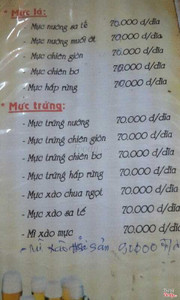 * Mực lá:
- Mực nướng sa tế 70.000 đ/dĩa
- Mực nướng muối ớt 70.000 đ/dĩa
- Mực chiên giòn 70.000 đ/dĩa
- Mực chiên bơ 70.000 đ/dĩa
- Mực hấp rừng 70.000 đ/dĩa
* Mực trứng:
- Mực trứng nướng 70.000 đ/dĩa
- Mực trứng chiên giòn 70.000 đ/dĩa
- Mực trứng chiên bơ 70.000 đ/dĩa
- Mực trứng hấp rừng 70.000 đ/dĩa
- Mực xào chua ngọt 70.000 đ/dĩa
- Mực xào sa tế 70.000 đ/dĩa
- Mì xào mực 70.000 đ/dĩa
- Mì xào Hải sản 90.000 đ/dĩa